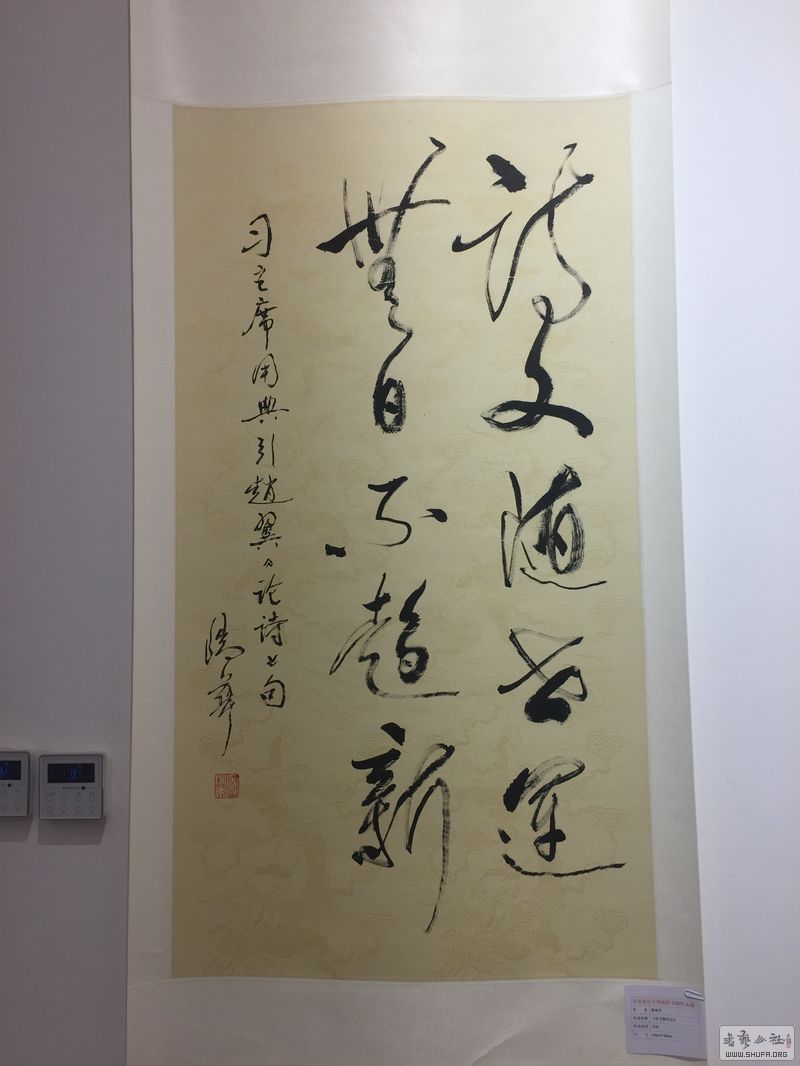 诗文随世运
無日不趨新
习主席用典引趙翼《论诗》句
書藝公社
WWW.SHUFA.ORG